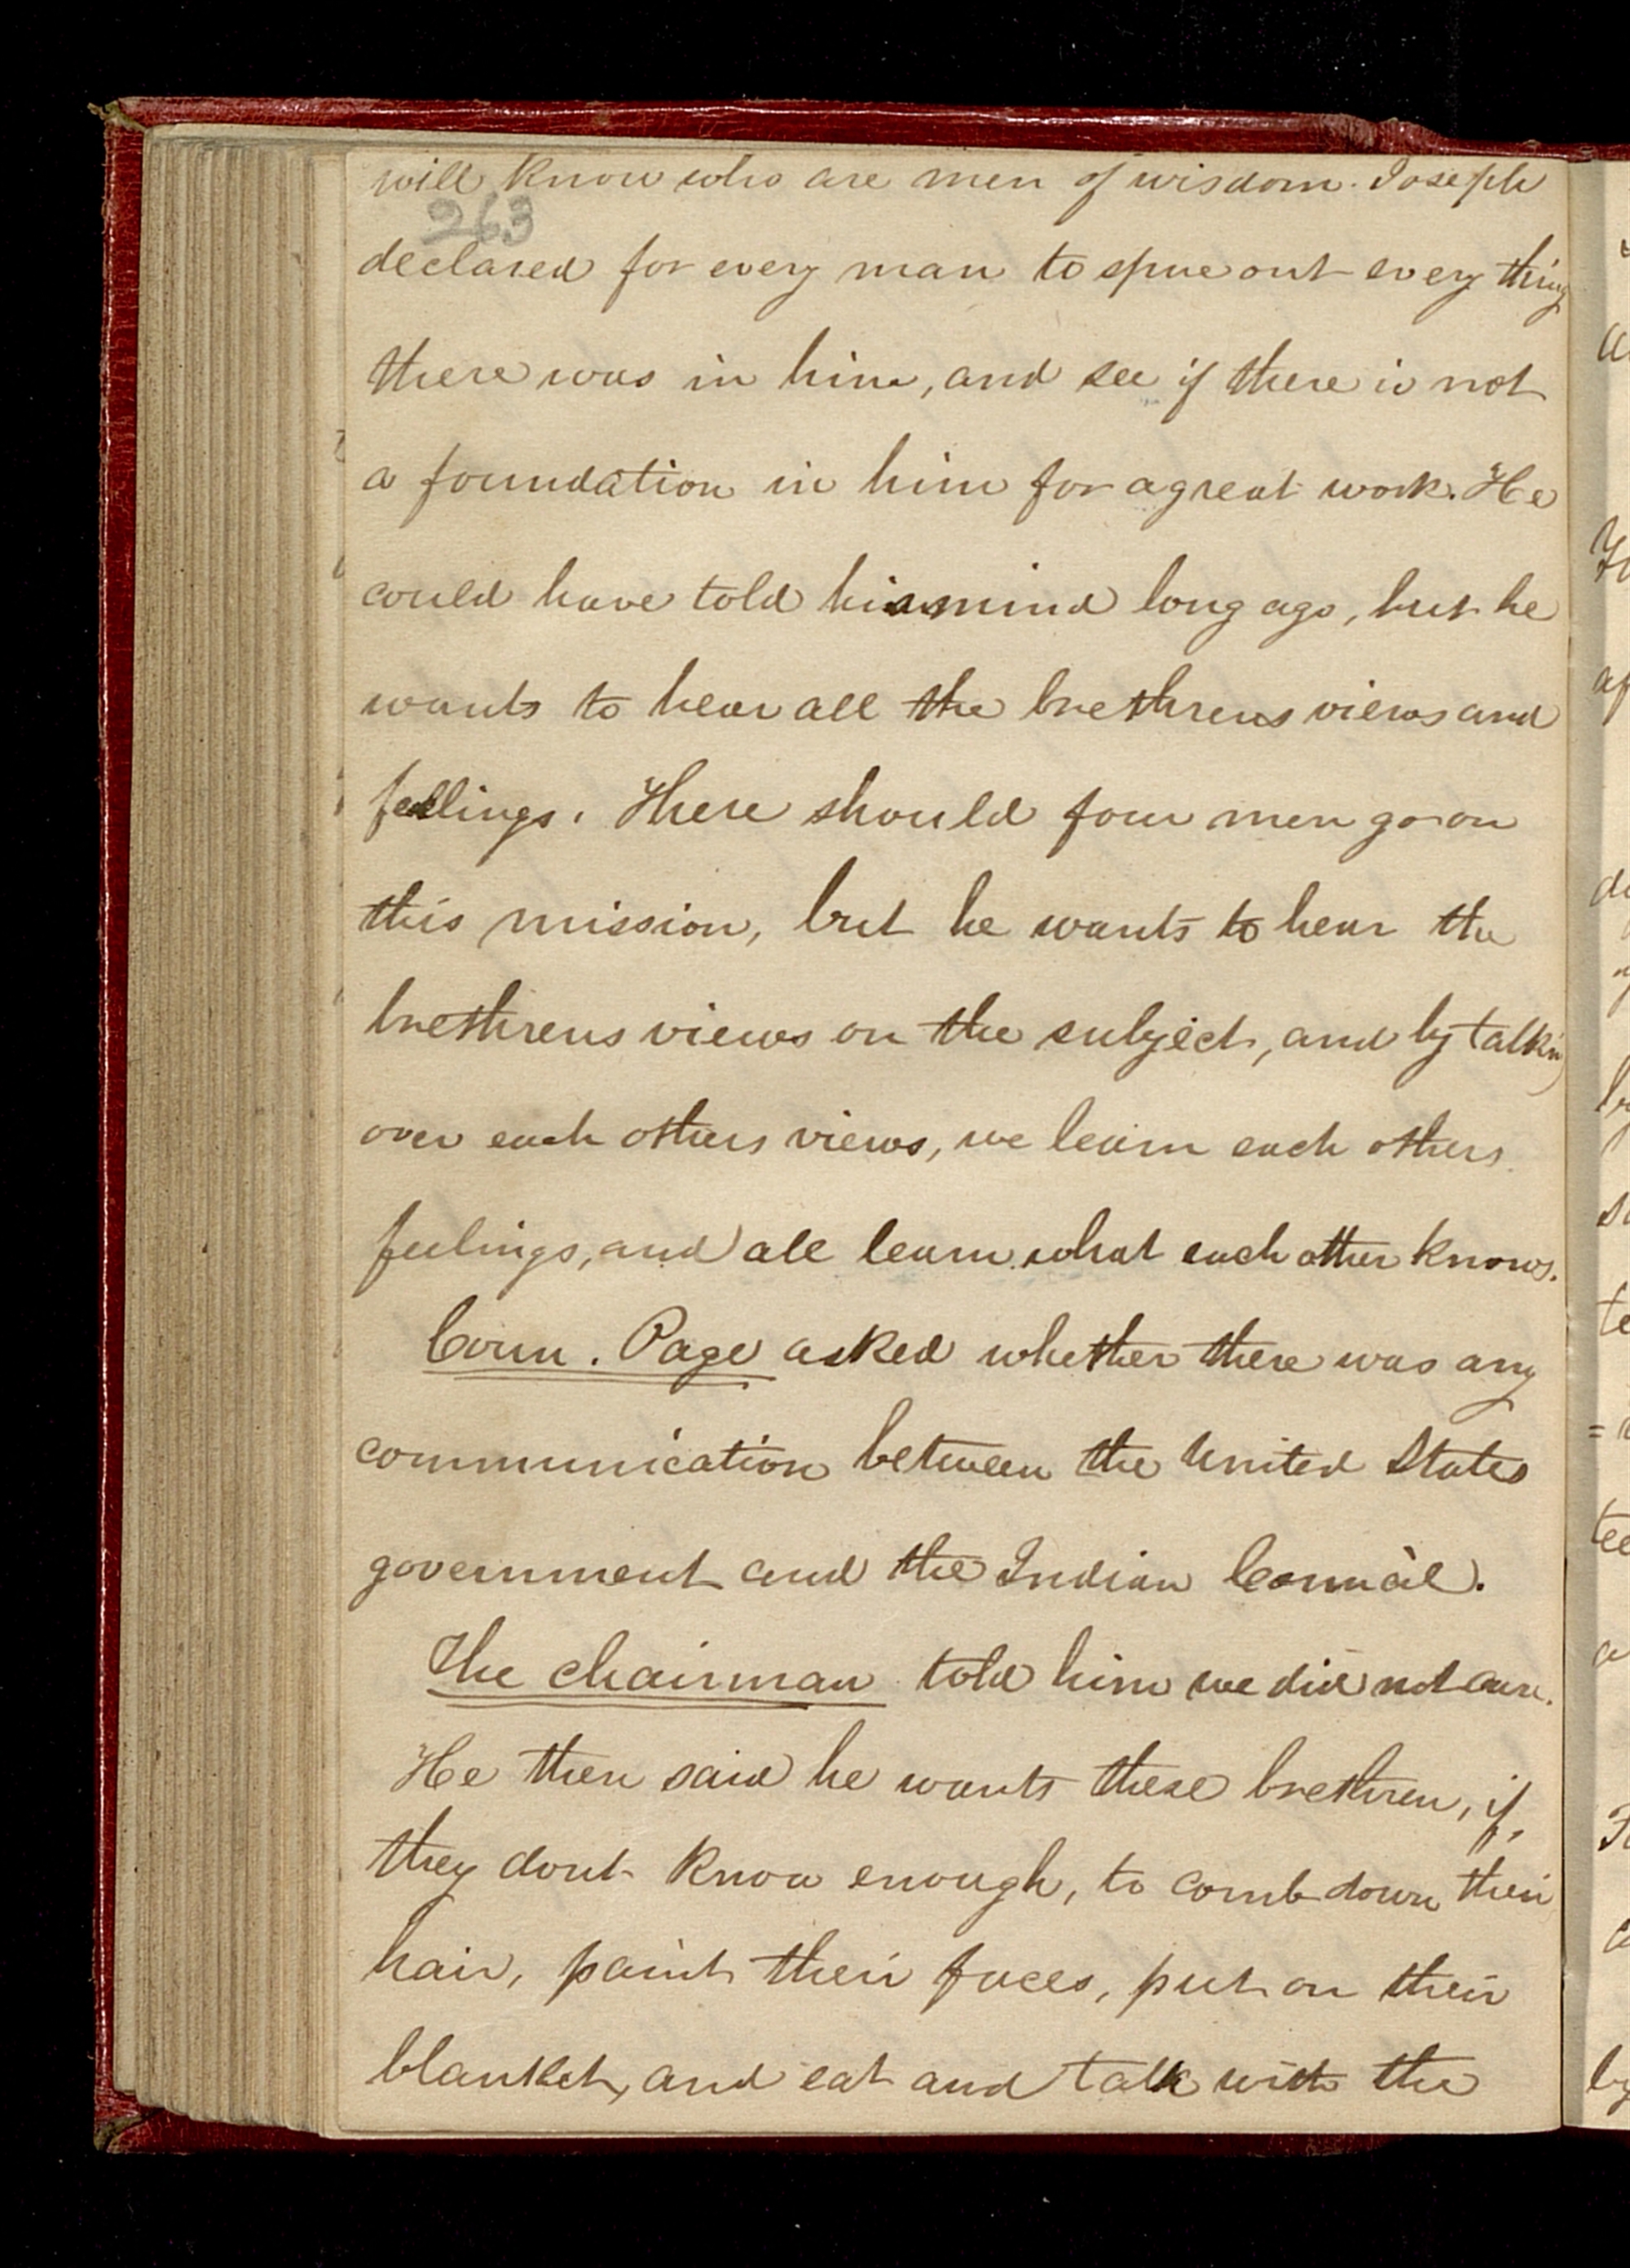 will know who are men of wisdom. Joseph
263
declared for every man to spue out every thing
there was in him, and see if there is not
a foundation in him for a great work. He
could have told his mind long ago, but he
wants to hear all the brethrens views and
feelings. There should four men go on
this mission, but he wants to hear the
brethrens views on the subject, and by talking
over each others views, we learn each others
feelings, and all learn what each other knows.
Coun. Page asked whether there was any
communication between the United States
government and the Indian Council.
The chairman told him we did not care.
He then said he wants these brethren, if,
they dont know enough, to comb down their
hair, paint their faces, put on their
blanket, and eat and talk with the